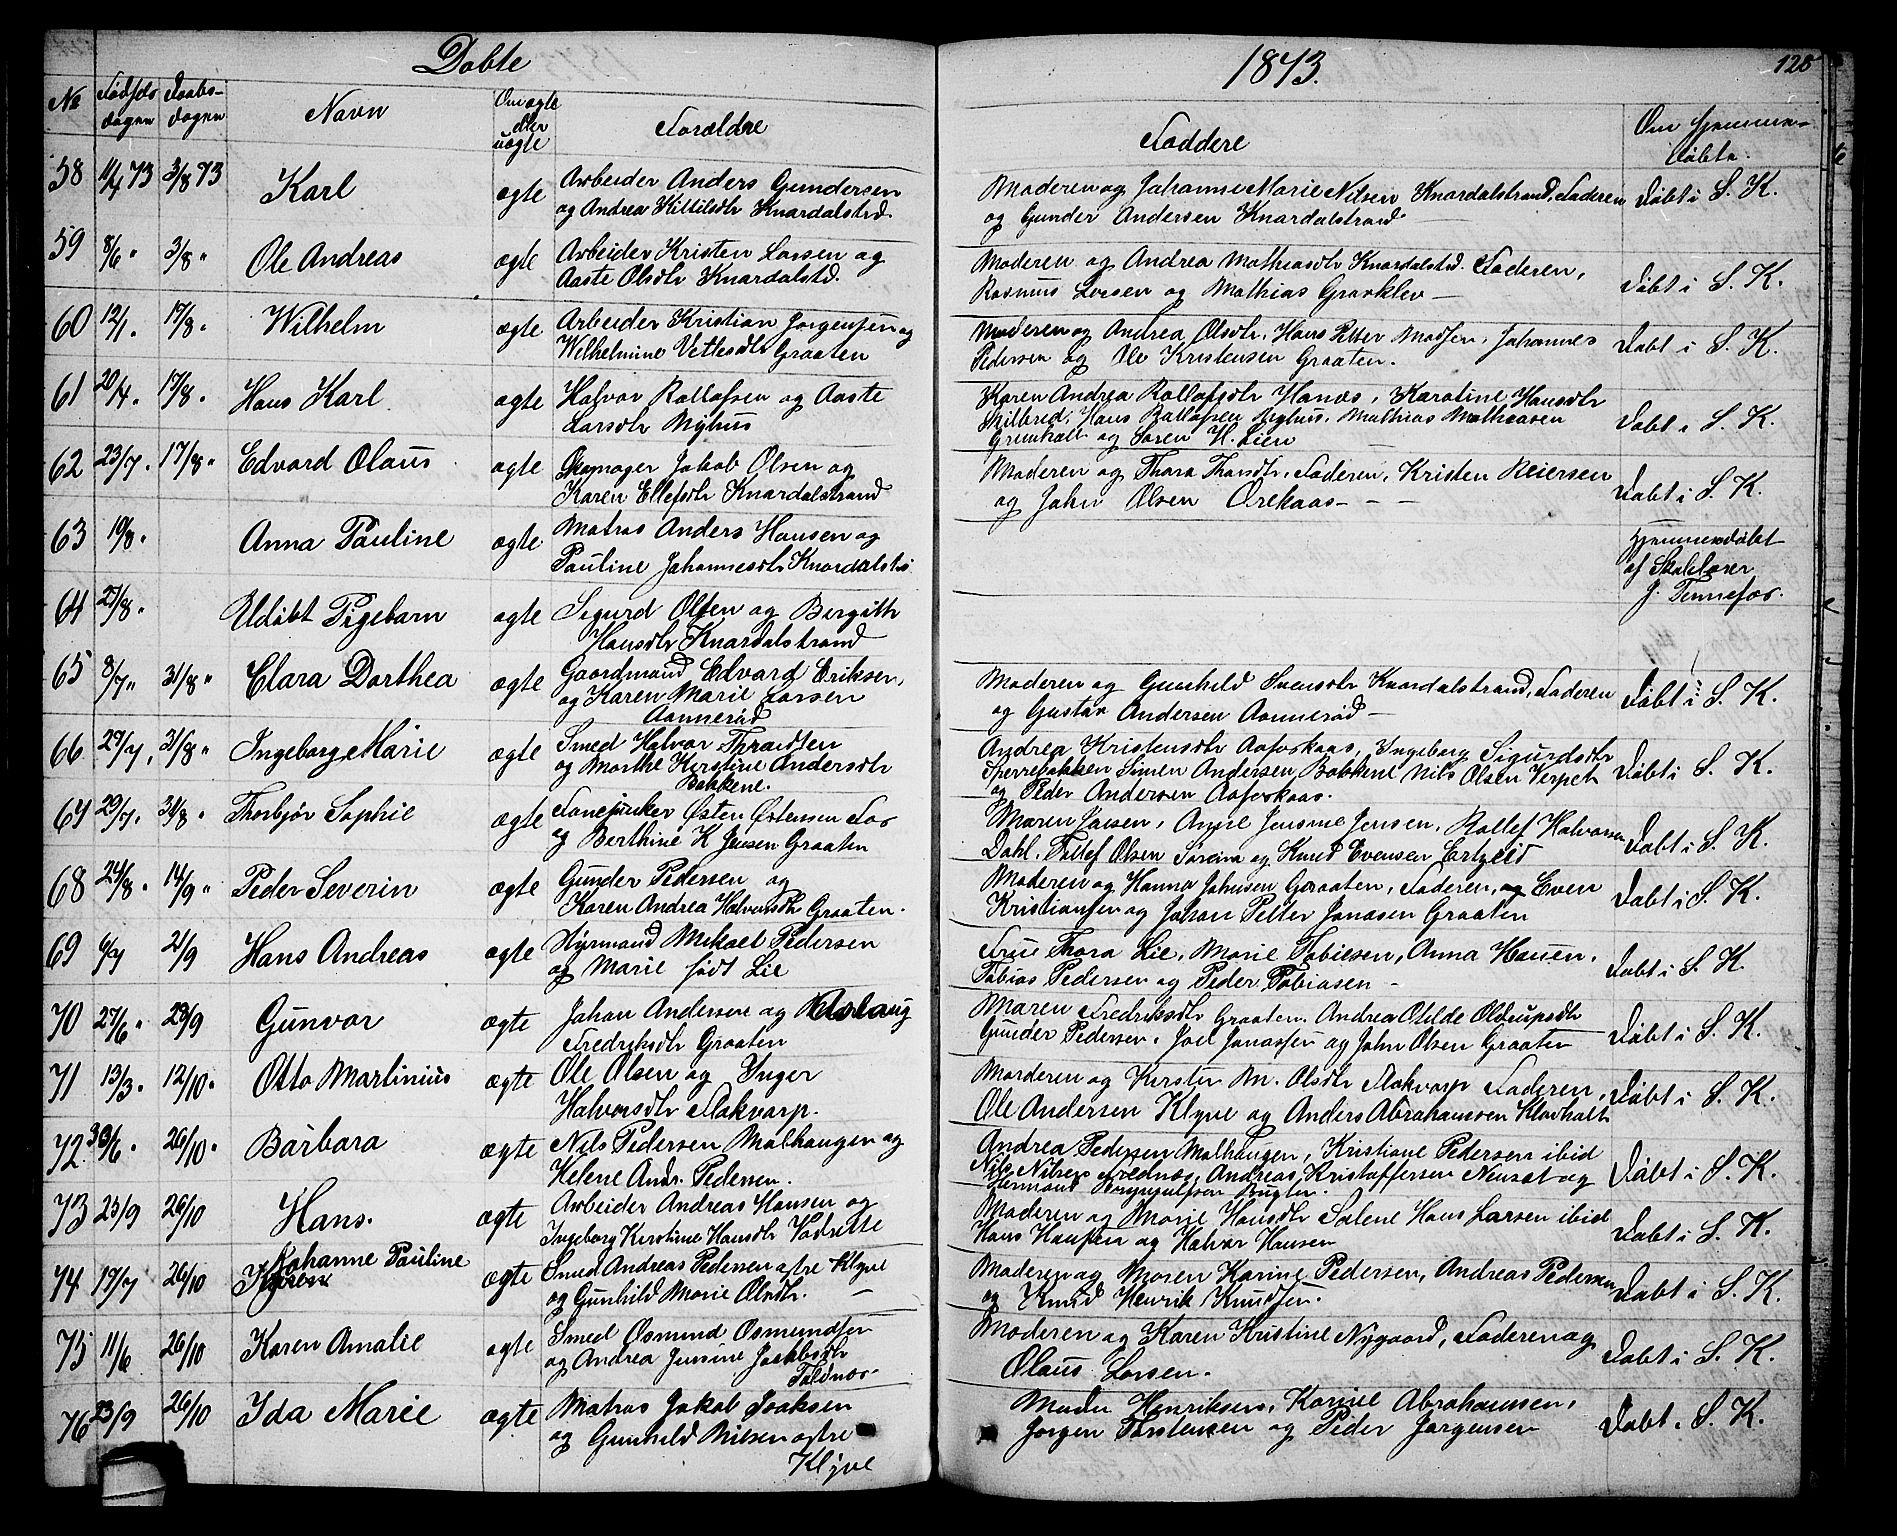 Døbte 1873. 128
№ Fødsels dagen Daabs- dagen Navn Om ægte eller uægte Forældre Faddere Om hjemme- døbte.
58 11/4 73 3/8 73 Karl ægte Arbeider Anders Gundersen Moderen og Johanne Marie Nilsen Knardalstrand, Faderen Døbt i S. K.
og Andrea Kittilsdtr Knardalstrd. og Gunder Andersen Knardalstrand
59 8/6 " 3/8 " Ole Andreas ægte Arbeider Kristen Larsen og Moderen og Andrea Mathiasdtr Knardalstrd. Faderen, Døbt i S. K.
Aaste Olsdtr Knardalstd. Rasmus Larsen og Mathias Graaklev
60 12/1 " 17/8 " Wilhelm ægte Arbeider Kristian Jørgensen og Moderen og Andrea Olsdtr. Hans Petter Madsen, Johannes Døbt i S. K.
Wilhelmine Vettesdtr Graaten Pedersen og Ole Kristensen Graaten.
61 20/4 " 17/8 " Hans Karl ægte Halvor Rollefsen og Aaste Karen Andrea Rollefsdtr Hanes, Karoline Hansdtr Døbt i S. K.
Larsdtr Myhus Hans Rollefsen Myhus, Mathias Mathiasen
og Søren H. Lien
62 23/7 " 17/8 " Edvard Olaus ægte Skomager Jakob Olsen og Moderen og Thora Thorsdtr. Faderen, Kristen Reiersen Døbt i S. K.
Karen Ellefsdtr Knardalstrand og John Olsen Orekaas
63 19/8 " Anna Pauline ægte Matros Anders Hansen og Hjemmedøbt
Pauline Johannesdtr Knardalsts af Skolelærer
J. Tennefos.
64 27/8 " Udøbt Pigebarn ægte Sigurd Olsen og Bergith
Hansdtr Knardalstrand
65 8/7 " 31/8 " Clara Dorthea ægte Gaardmand Edvard Eriksen, Moderen og Gunhild Svensdtr Knardalstrand, Faderen Døbt i S. K.
og Karen Marie Larsen og Gustav Andersen Aannerød
Aannerød
66 29/7 " 31/8 " Ingeborg Marie ægte Smed Halvor Throndsen Andrea Kristensdtr Aaforskaas, Ingeborg Sigurdsdtr Døbt i S. K.
og Marthe Kirstine Andersdtr Sperrebakken Simen Andersen Bakkene Nils Olsen Verpet
Bakkene. og Peder Andersen Aaforskaas.
67 29/7 " 31/8 " Thorbjør Sophie ægte Fanejunker Østen Østensen Fos Maren Jansen, Anne Jensine Jensen, Rollef Halvorsen Døbt i S. K.
og Berthine K Jensen Graaten Dahl, Tellef Olsen og Knud Evensen
68 24/8 " 14/9 " Peder Severin ægte Gunder Pedersen og Moderen og Hanna Johnsen Graaten, Faderen, og Even Døbt i S. K.
Karen Andrea Halvorsdtr Graaten. Kristiansen og Johan Petter Jonasen Graaten
69 6/7 21/9 Hans Andreas ægte Styrmand Mikael Pedersen Frue Thora Lie, Marie Tobiesen, Anna Hauen, Døbt i S. K.
og Marie født Lie Tobias Pedersen og Peder Tobiasen
70 27/6 " 28/9 Gunvor ægte Johan Andersen og Aslaug Maren Fredriksdtr Graaten. Andrea Otilde Olerupsdtr Døbt i S. K.
Fredriksdtr Graaten Gunder Pedersen, Joel Jonassen og John Olsen Graaten
71 13/3 " 12/10 " Otto Martinius ægte Ole Olsen og Inger Moderen og Kirsten M. Olsdtr Flakvarp Faderen, Døbt i S. K.
Halvorsdtr Flakvarp. Ole Andersen Klyve og Anders Abrahamsen Klovholt
72 30/6 " 26/10 " Barbara ægte Nils Pedersen Molhaugen og Andrea Pedersen Molhaugen, Kristiane Pedersen ibid Døbt i S. K.
Helene Andr. Pedersen. Nils Nilsen Frednæs, Andreas Kristoffersen Nenset og
73 23/9 26/10 Hans. ægte Arbeider Andreas Hansen og Moderen og Marie Hansdtr Solene Hans Larsen ibid Døbt i S. K.
Ingeborg Kirstine Hansdtr Vadrette Hans Hansen og Halvor Hansen
74 19/7 26/10 Johanne Pauline ægte Smed Andreas Pedersen østre Klyve Moderen og Maren Karine Pedersen, Andreas Pedersen Døbt i S. K.
og Gunhild Marie Olsdtr. og Knud Henrik Knudsen.
75 11/6 26/10 Karen Amalie ægte Smed Osmund Osmundsen Moderen og Karen Kristine Nygaard, Faderen og Døbt i S. K.
og Andrea Jensine Jacobsdtr Olaus Larsen.
Faldnæs
76 23/9 26/10 Ida Marie ægte Matros Jakob Isaksen Henriksen, Karine Abrahamsen, Døbt i S. K.
og Gunhild Nilsen østre Jørgen Torstensen og Peder Jørgensen
Klyve